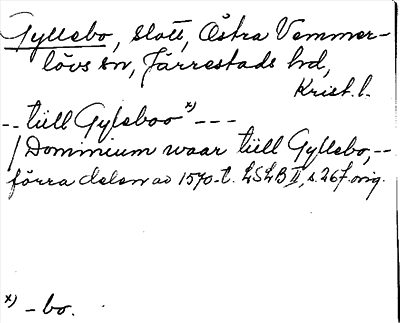 Gyllebo, slott, Östra Vemmer-
lövs sn, Järrestads hd,
Krist. l.
-- tüll Gyleboo x) ---
/ Dominium waar tüll Gyllebo, --
förra delen av 1570-t. LSLB II, s. 267. orig.
x) -bo.